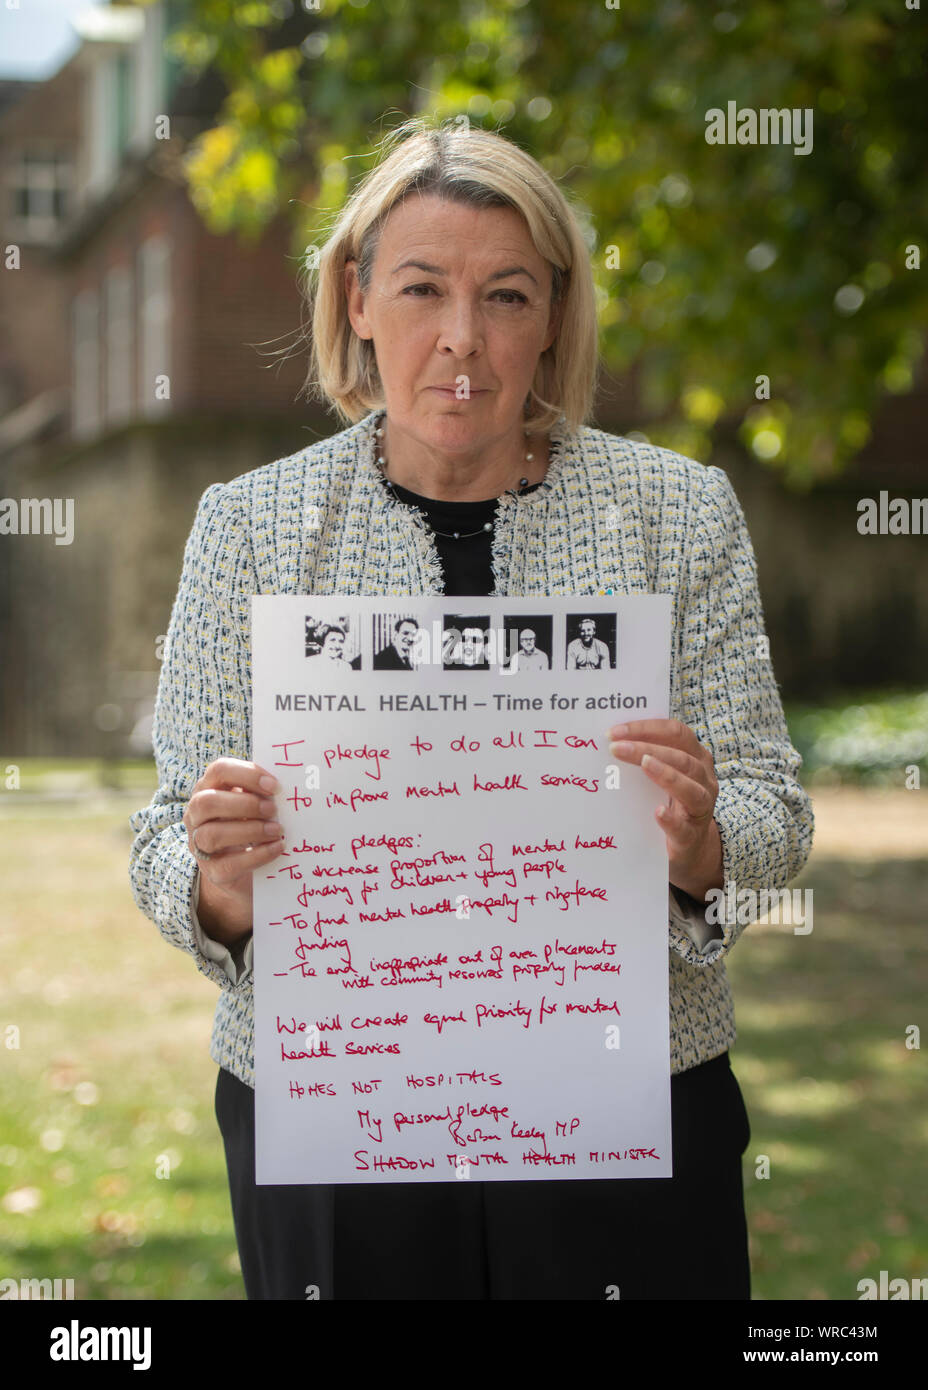 MENTAL HEALTH – Time for action
I pledge to do all I can
to improve mental health services
Labour pledges:
- To increase proportion of mental health
funding for children + young people
- To fund mental health properly + ringfence
funding
- To end inappropriate out of area placements
with community resources properly funded
We will create equal priority for mental
health services
HOMES NOT HOSPITALS
My personal pledge
Barbara Keeley MP
SHADOW MENTAL HEALTH MINISTER
alamy
alamy
Image ID: WRC43M
www.alamy.com